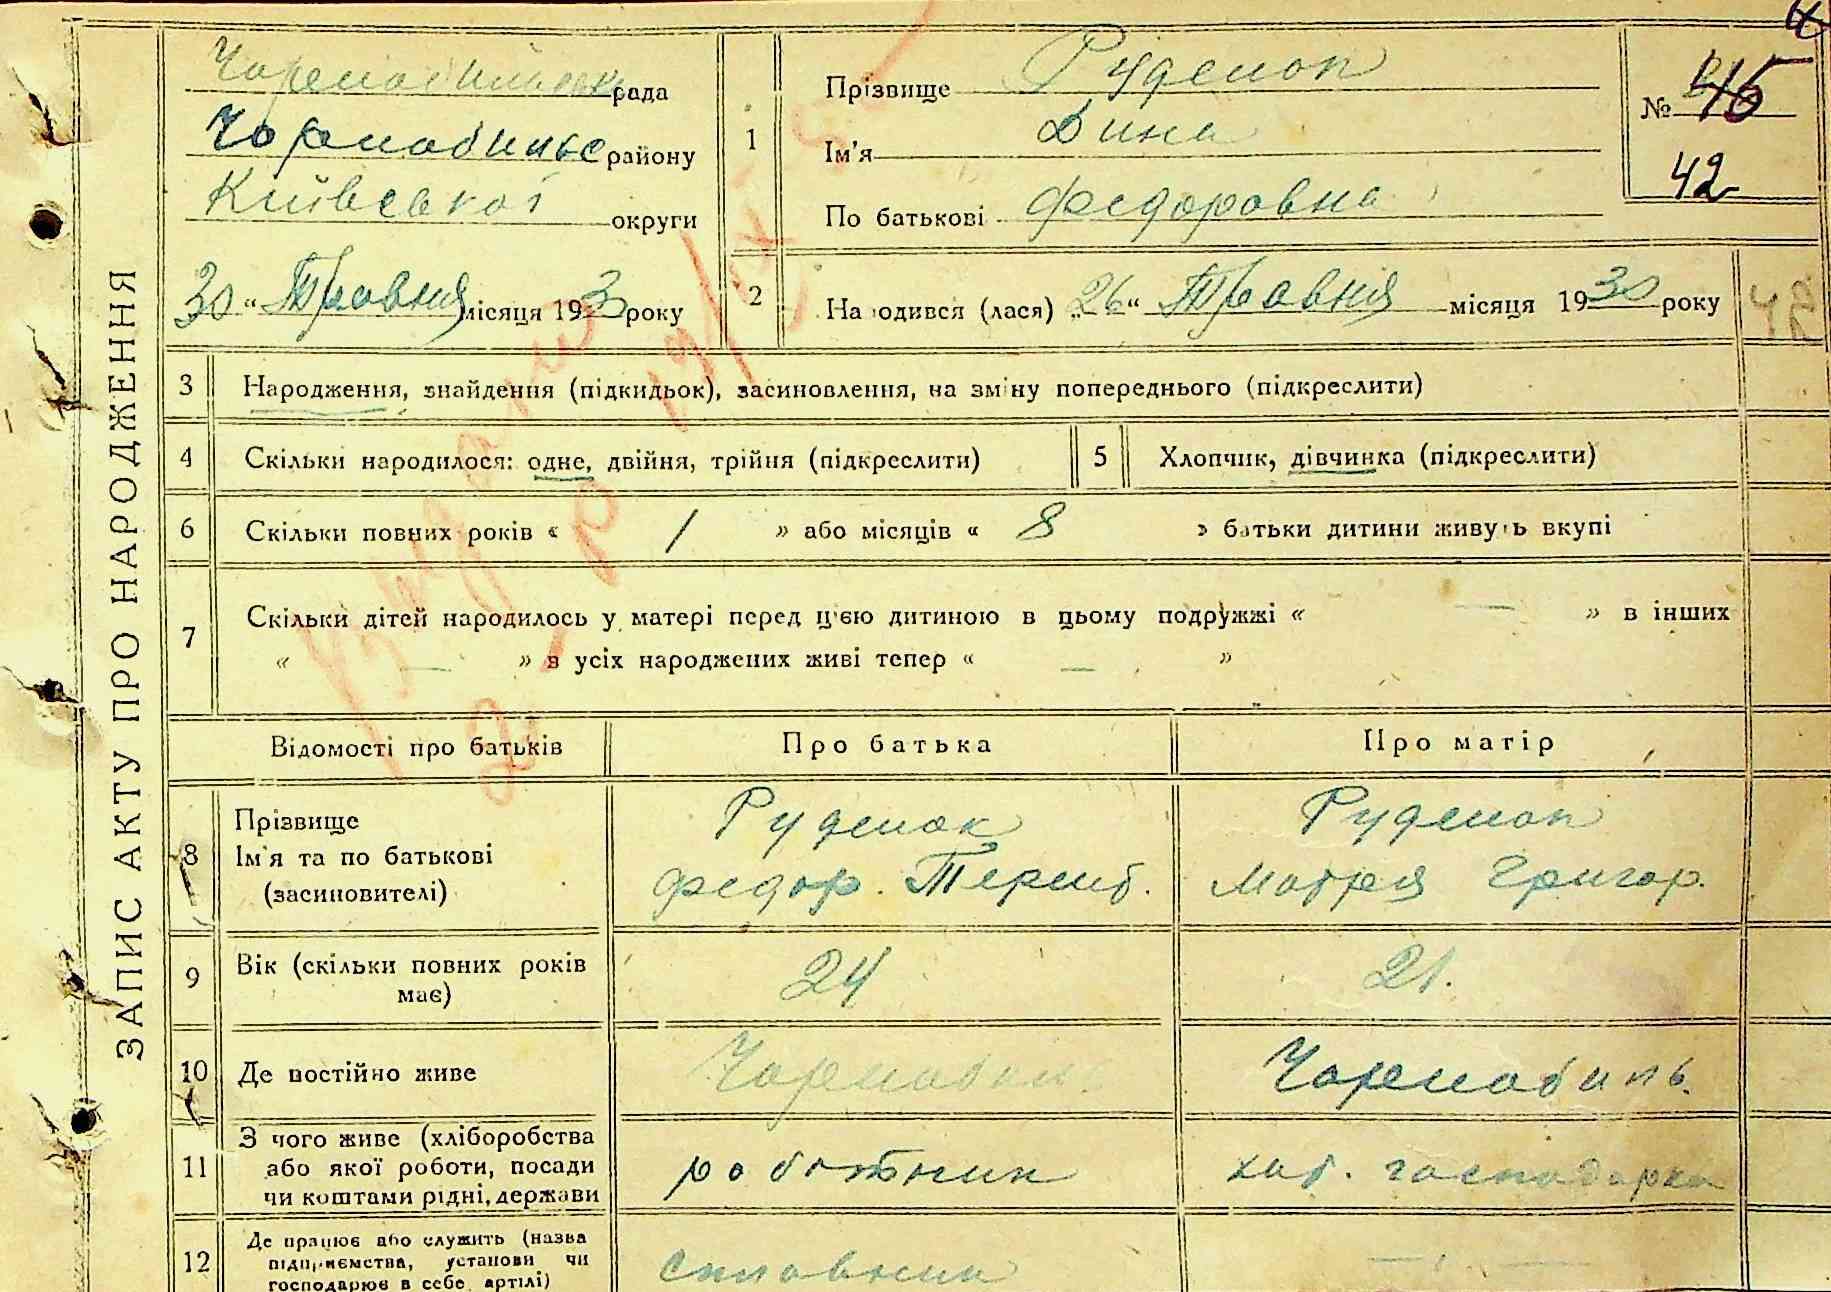 ЗАПИС АКТУ ПРО НАРОДЖЕННЯ
рада
району
Київської округи
30 " Травня місяця 1930 року
№ 42
1 Прізвище Руденок
Ім'я Дина
По батькові Федоровна
2 На одився (лася) „26" Травня місяця 1930 року
3 Народження, знайдення (підкидьок), засиновлення, на зміну попереднього (підкреслити)
4 Скільки народилося: одне, двійня, трійня (підкреслити)
5 Хлопчик, дівчинка (підкреслити)
6 Скільки повних років « 1 » або місяців « 8 » батьки дитини живуть вкупі
7 Скільки дітей народилось у матері перед цією дитиною в цьому подружжі « — » в інших
« — » з усіх народжених живі тепер « — »
Відомості про батьків
Про батька
Про матір
8 Прізвище
Ім'я та по батькові
(засиновителі)
Руденок
Федор.
Руденок
Мотря Григор.
9 Вік (скільки повних років
має)
24
21.
10 Де постійно живе
Чорнобиль
Чорнобиль.
11 З чого живе (хліборобства
або якої роботи, посади
чи коштами рідні, держави
роботник
хат. господарка
12 Де працює або служить (назва
підприємства, установи чи
господарює в себе артілі)
Сплавник
—